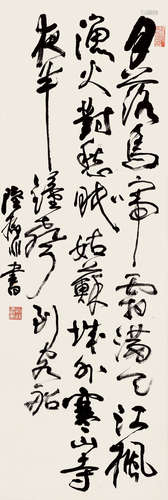 月落烏啼霜滿天江楓
漁火對愁眠姑蘇城外寒山寺
夜半鐘聲到客船
陸抑非書